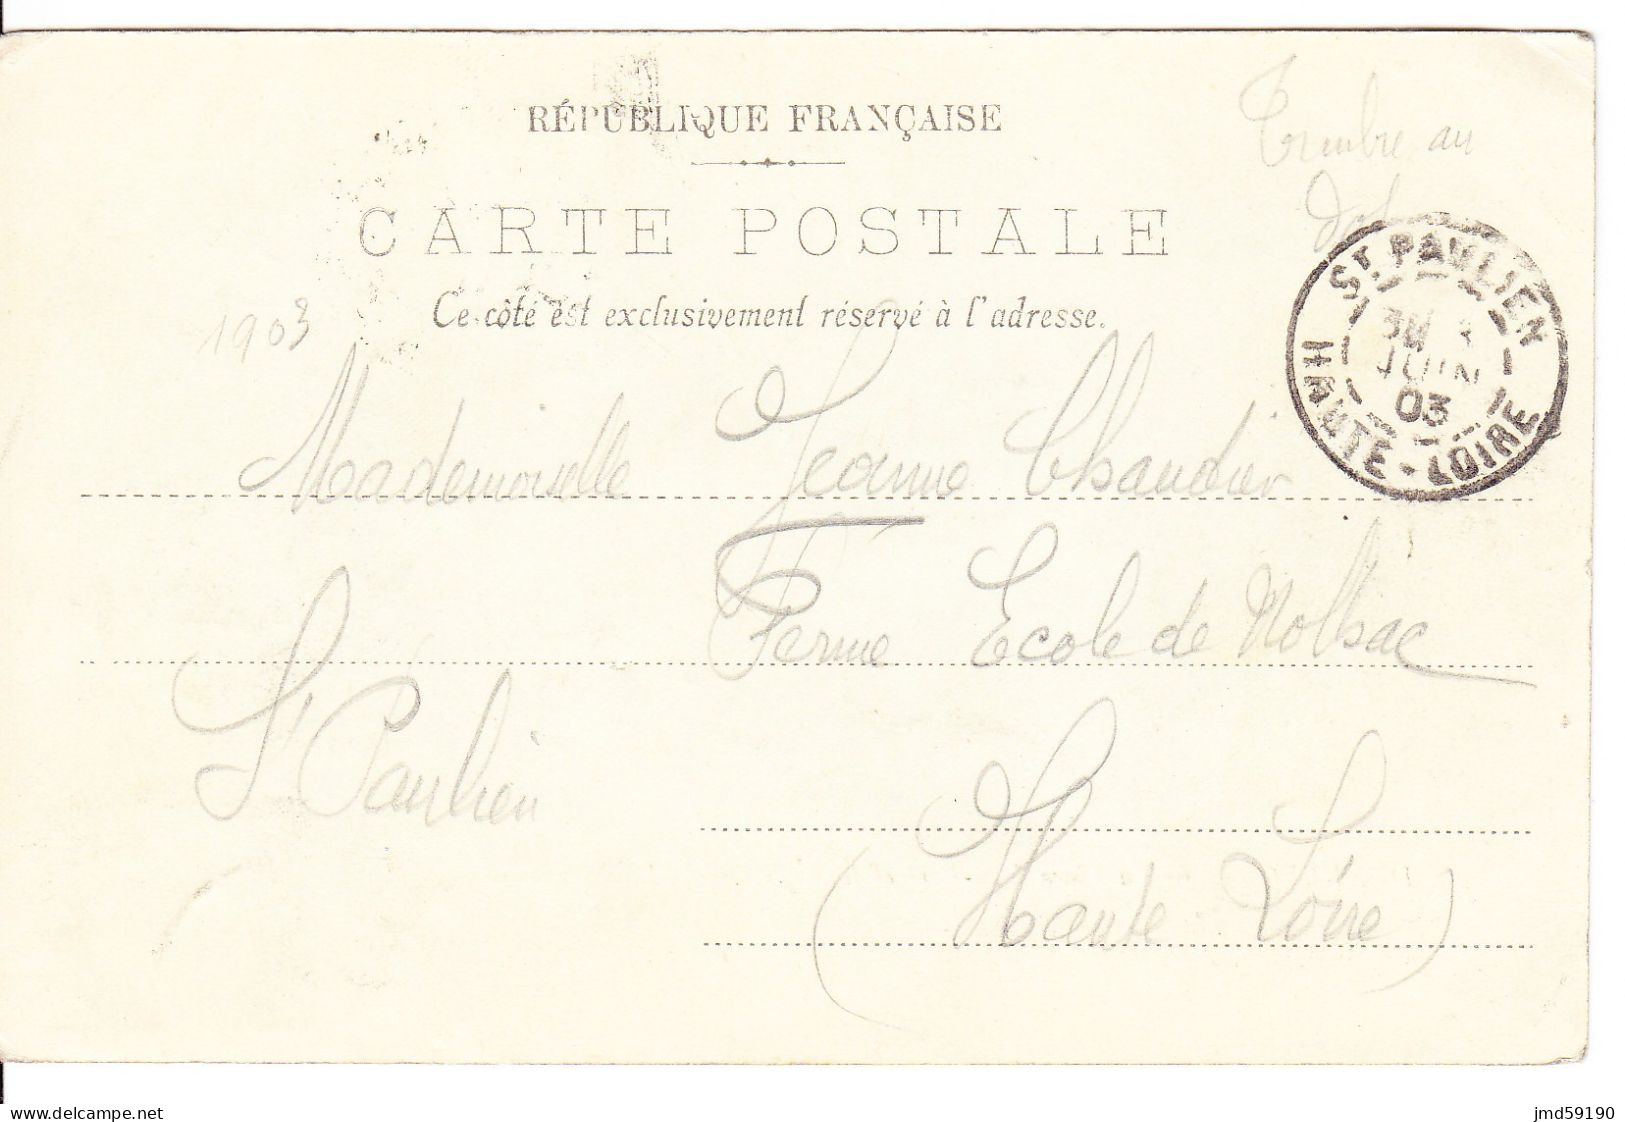 RÉPUBLIQUE FRANÇAISE
Timbre au
dos
CARTE POSTALE
Ce côté est exclusivement réservé à l'adresse.
1903
ST. PAULIEN
JUIN
03
HAUTE-LOIRE
Mademoiselle Jeanne Chaudier
Ferme Ecole de Nolhac
St Paulien
(Haute Loire)
www.delcampe.net
jmd59190